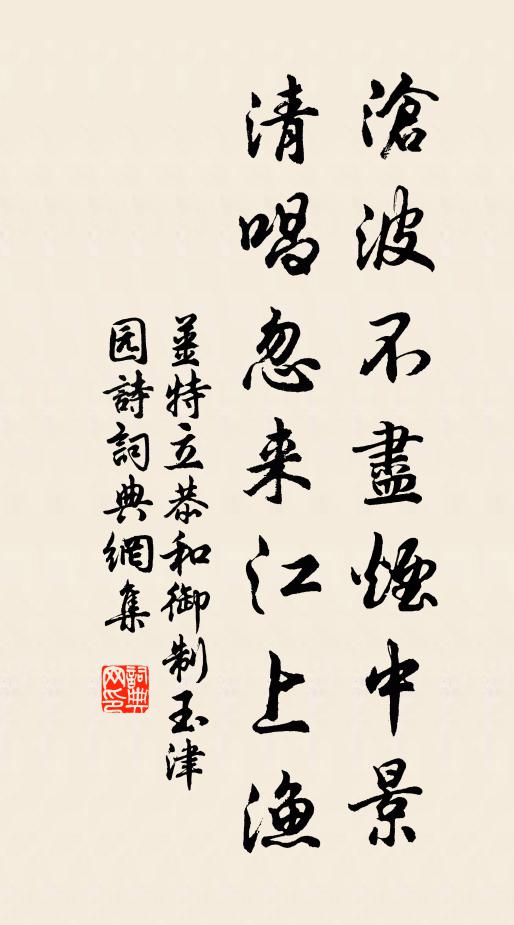 滄波不盡煙中景
清唱忽来江上漁
薑特立恭和御制玉津
园詩詞典網集
詞典
网印